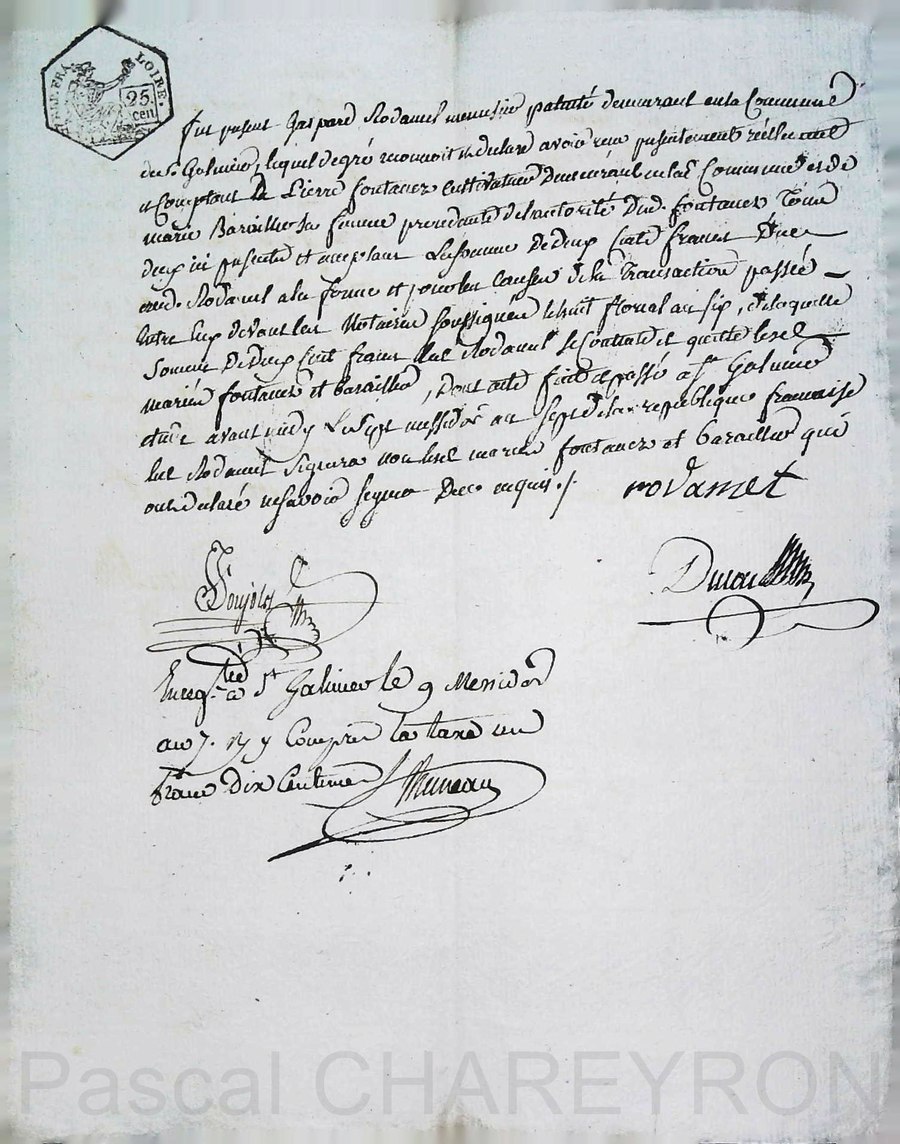 LOIRE.
25.
cen
fut présent Gaspard Rodamet menusier patenté demeurant en la Commune
de St Galmier, lequel de gré reconnoit et déclare avoir reçu présentement réellement
et Comptant de Pierre fontanez cultivateur Demeurant en la de Commune et de
marie Barailler sa femme procedante de l'autorité Dud. fontanez Tous
deux ici présents et acceptant La somme De deux Cents francs Due
aud. Rodamet a la forme et pour les Causes de la Transaction passée
entre Eux devant les Notaires soussignés le huit floreal an six, de laquelle
somme De deux Cent francs led Rodamet se Contente et quitte lesd
mariés fontanez et barailler, Dont acte fait et passé a St Galmier
étude avant midy Le sept messidor an sept de la republique francoise
led Rodamet signera non lesd mariés fontanez et barailler qui
ont déclaré ne savoir signer De ce enquis ./.
rodamet
Enregtré a St Galmier le 9 Messidor
an 7. R y Compris la taxe un
franc Dix Centimes
Pascal CHAREYRON